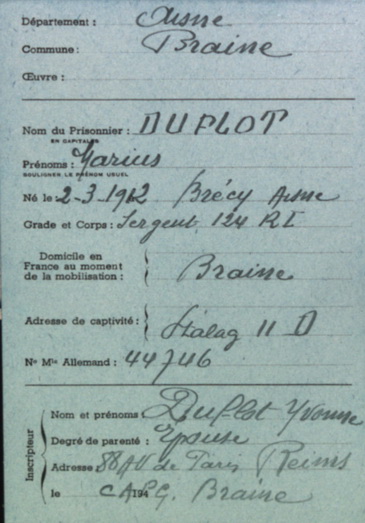 Département : Aisne
Commune : Braine
Œuvre :
Nom du Prisonnier : DUFLOT
EN CAPITALES
Prénoms : Marius
SOULIGNER LE PRÉNOM USUEL
Né le 2-3-1912 Brécy Aisne
Grade et Corps : Sergent 124 RI
Domicile en
France au moment
de la mobilisation : Braine
Adresse de captivité : Stalag II D
N° Mle Allemand : 44746
Inscripteur
Nom et prénoms : Duflot Yvonne
Degré de parenté : Epouse
Adresse 88 AV de Paris Reims
le 194 C.A.P.G. Braine